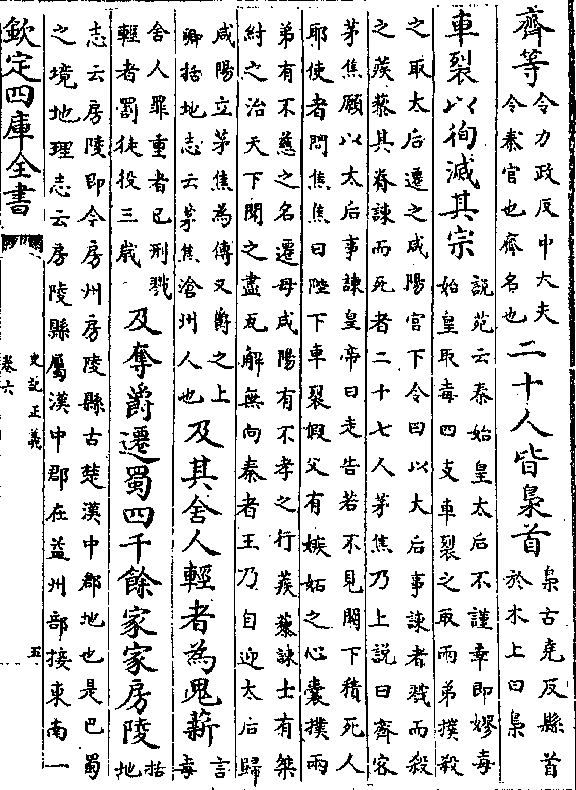 齊等
令力政反中大夫
令秦官也齊名也
二十人皆梟首
梟古堯反縣首
於木上曰梟
車裂以徇滅其宗
說苑云秦始皇太后不謹幸即嫪毐
始皇取毐四支車裂之取兩弟撲殺
之取太后遷之咸陽宮下令曰以大后事諫者戮而殺
之蒺藜其脊諫而死者二十七人茅焦乃上說曰齊客
茅焦願以太后事諫皇帝曰走告若不見闕下積死人
耶使者問焦焦曰陛下車裂假父有嫉妬之心囊撲兩
弟有不慈之名遷母咸陽有不孝之行蒺藜諫士有桀
紂之治天下聞之盡瓦解無向秦者王乃自迎太后歸
咸陽立茅焦為傅又爵之上
卿括地志云茅焦滄州人也
及其舍人輕者為鬼薪
言
毐
舍人罪重者已刑戮
輕者罰徒役三歲
及奪爵遷蜀四千餘家家房陵
括
地
志云房陵即今房州房陵縣古楚漢中郡地也是巴蜀
之境地理志云房陵縣屬漢中郡在益州部接東南一
欽定四庫全書
史記正義
卷六
五